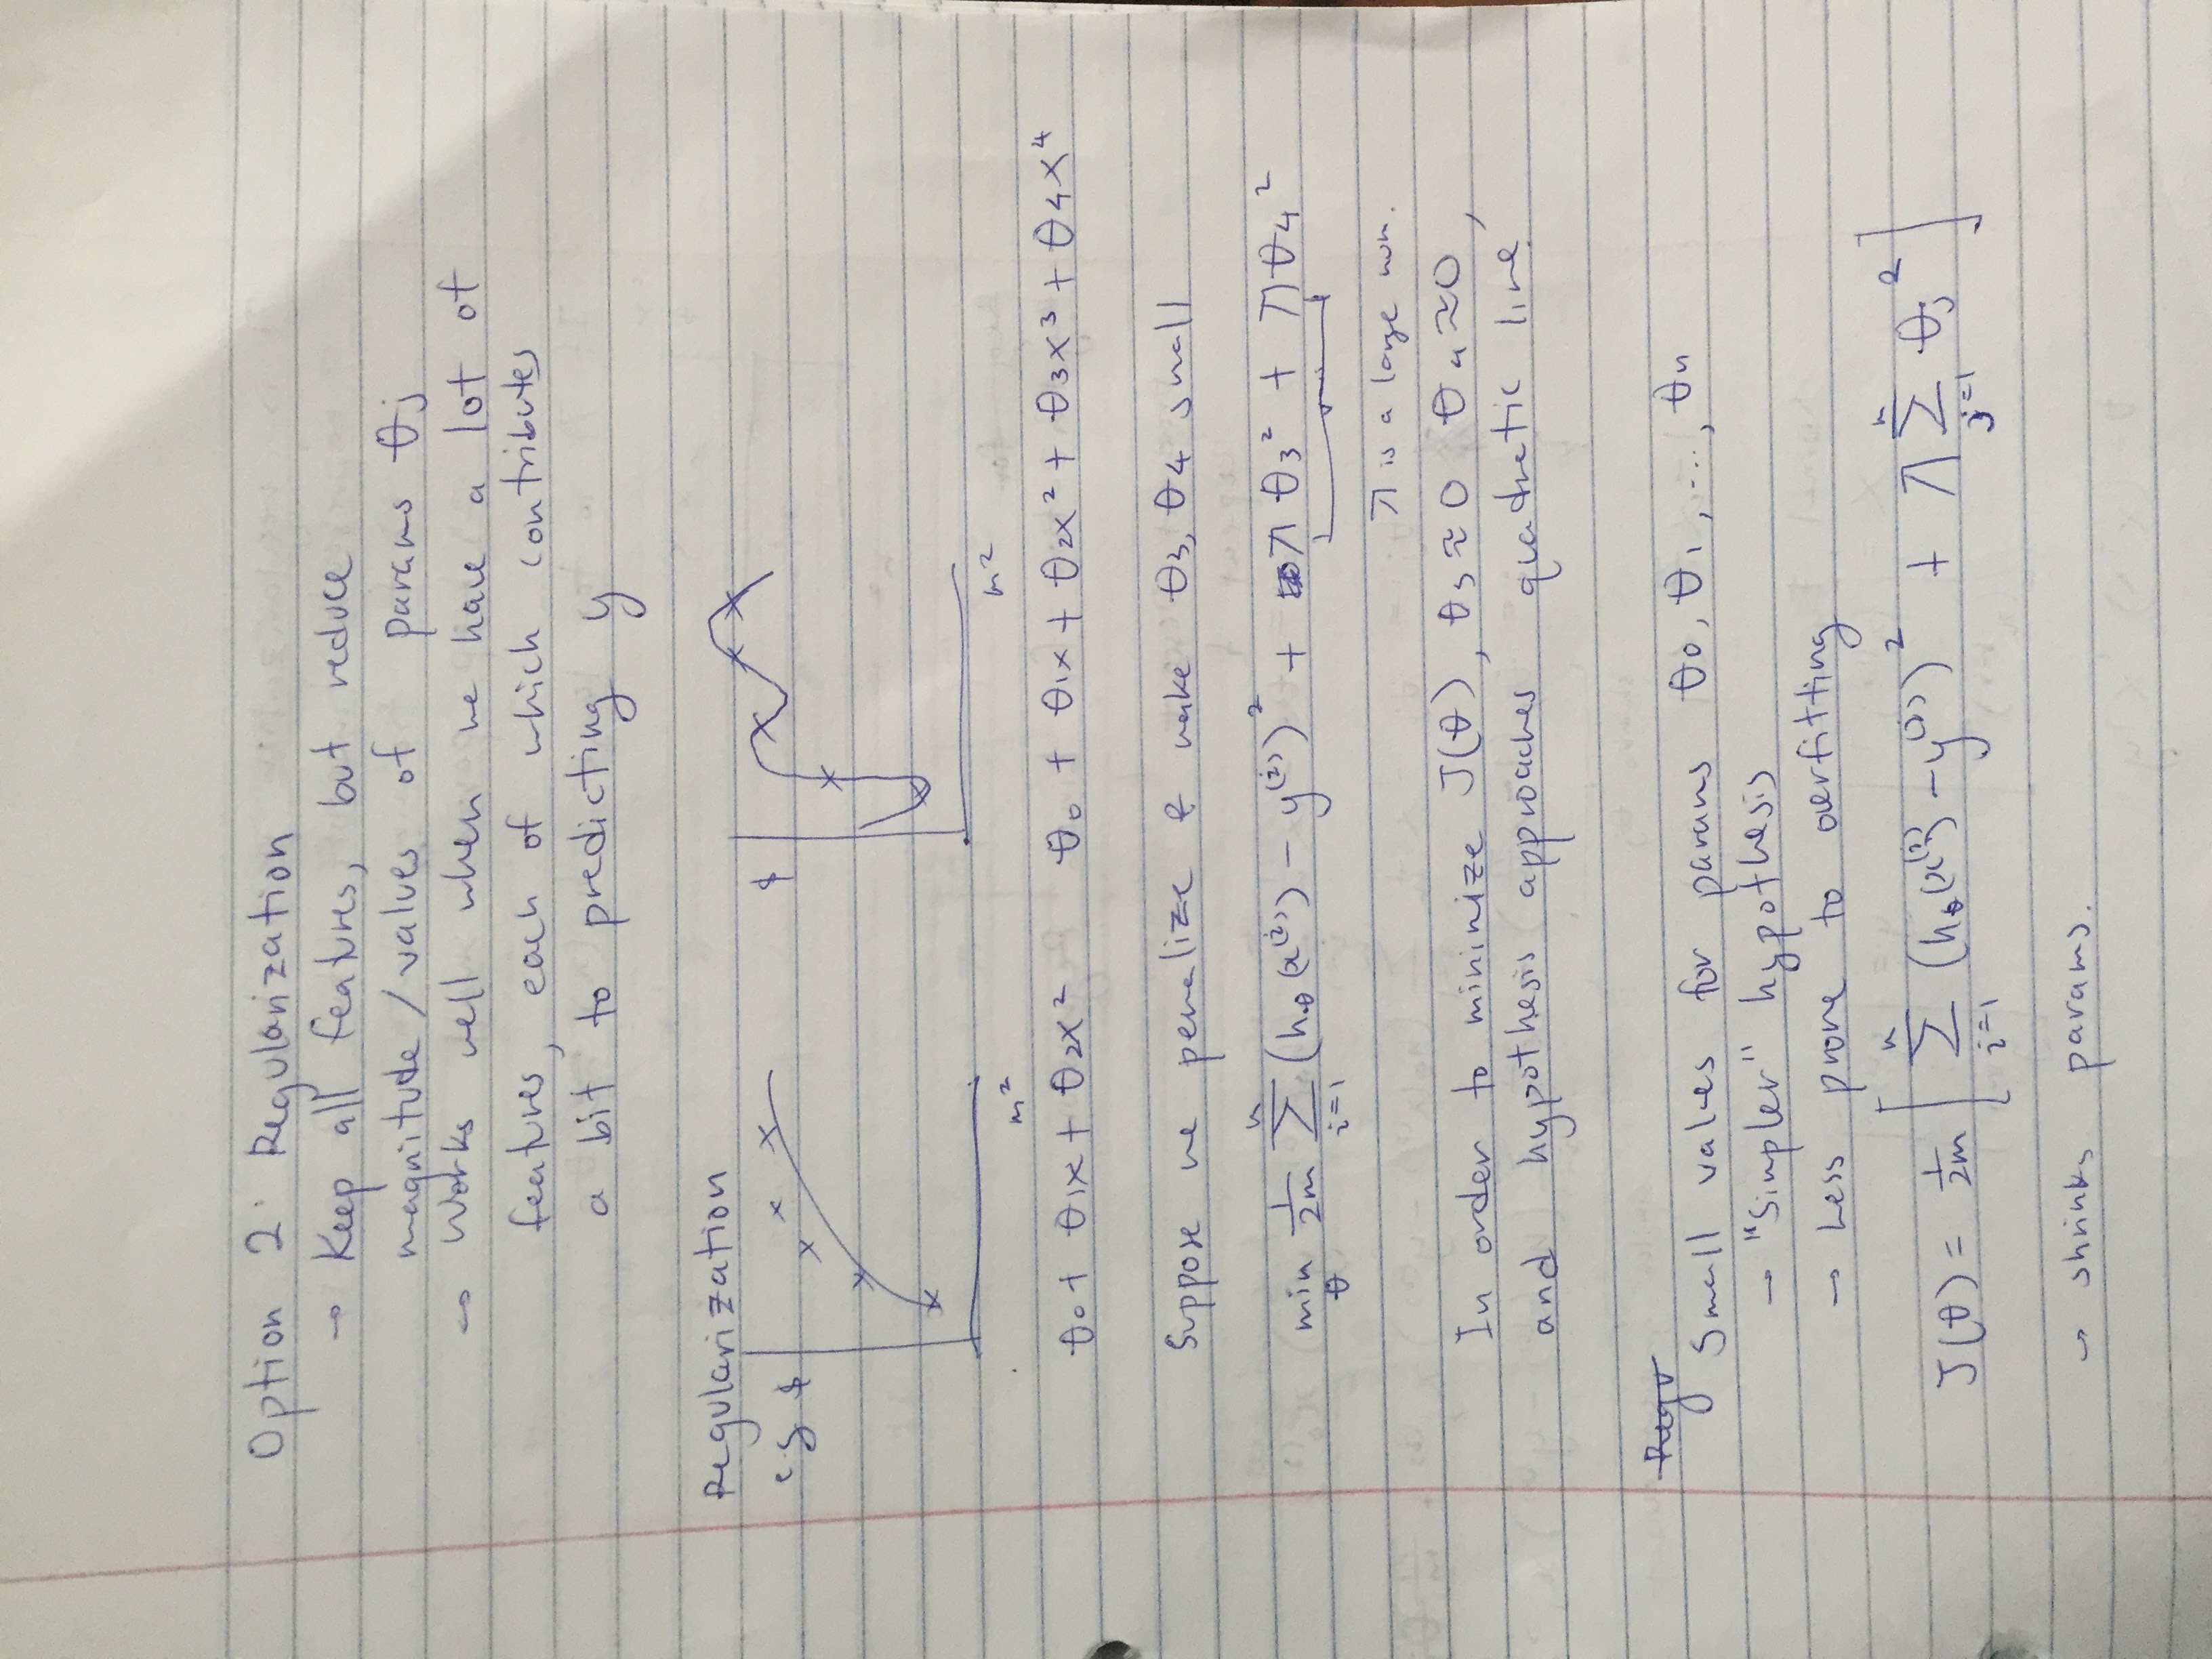 Option 2: Regularization
→ Keep all features, but reduce
magnitude/values of params θj
→ Works well when we have a lot of
features, each of which contributes
a bit to predicting y
Regularization
eg $
$
m²
m²
θ₀ + θ₁x + θ₂x²
θ₀ + θ₁x + θ₂x² + θ₃x³ + θ₄x⁴
Suppose we penalize & make θ₃, θ₄ small
min_θ 1/2m Σ_{i=1}^{n} (h_θ(x^(i)) - y^(i))² + λθ₃² + λθ₄²
λ is a large num.
In order to minimize J(θ), θ₃≈0 θ₄≈0,
and hypothesis approaches quadratic line
Regu
Small values for params θ₀, θ₁, ..., θₙ
→ "Simpler" hypothesis
→ Less prone to overfitting
J(θ) = 1/2m [ Σ_{i=1}^{n} (h_θ(x^(i)) - y^(i))² + λ Σ_{j=1}^{n} θj² ]
→ shrinks params.